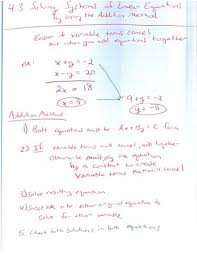 4.3 Solving Systems of Linear Equations
by Using the Addition Method
Easier if variable terms cancel
out when you add equations together
ex:
x + y = -2
x - y = 20
2x = 18
x = 9
9 + y = -2
y = -11
Addition Method
1) Both equations must be Ax + By = C form
2) If variable terms will cancel, add together
Otherwise multiply one equation
by a constant to create
variable terms that will cancel
3) Solve resulting equation
4) Substitute into other original equation to
solve for other variable
5. Check both solutions in both equations